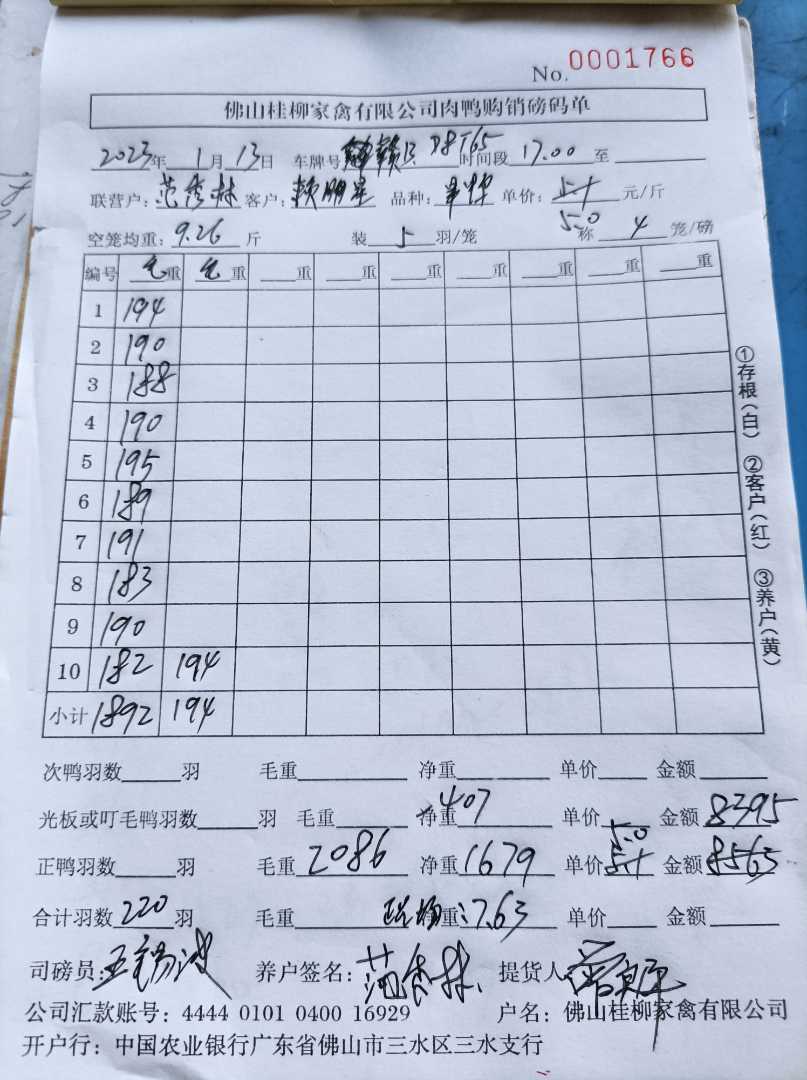 No. 0001766
佛山桂柳家禽有限公司肉鸭购销磅码单
2023年 1月 13日 车牌号 赣 时间段 17.00 至
联营户: 范秀林 客户: 赖 品种: 单价: 5.1 元/斤
5.0
空笼均重: 9.26 斤 装 5 羽/笼 称 4 笼/磅
编号 毛重 毛重 重 重 重 重 重 重 重
1 194
2 190
3 188
4 190
5 195
6 189
7 191
8 183
9 190
10 182 194
小计 1892 194
①存根(白) ②客户(红) ③养户(黄)
次鸭羽数 羽 毛重 净重 单价 金额
光板或叮毛鸭羽数 羽 毛重 净重 407 单价 金额 8395
5.0
正鸭羽数 羽 毛重 2086 净重 1679 单价 5.1 金额 8563
合计羽数 220 羽 毛重 净重: 7.63 单价 金额
司磅员: 养户签名: 范秀林 提货人
公司汇款账号: 4444 0101 0400 16929 户名: 佛山桂柳家禽有限公司
开户行: 中国农业银行广东省佛山市三水区三水支行